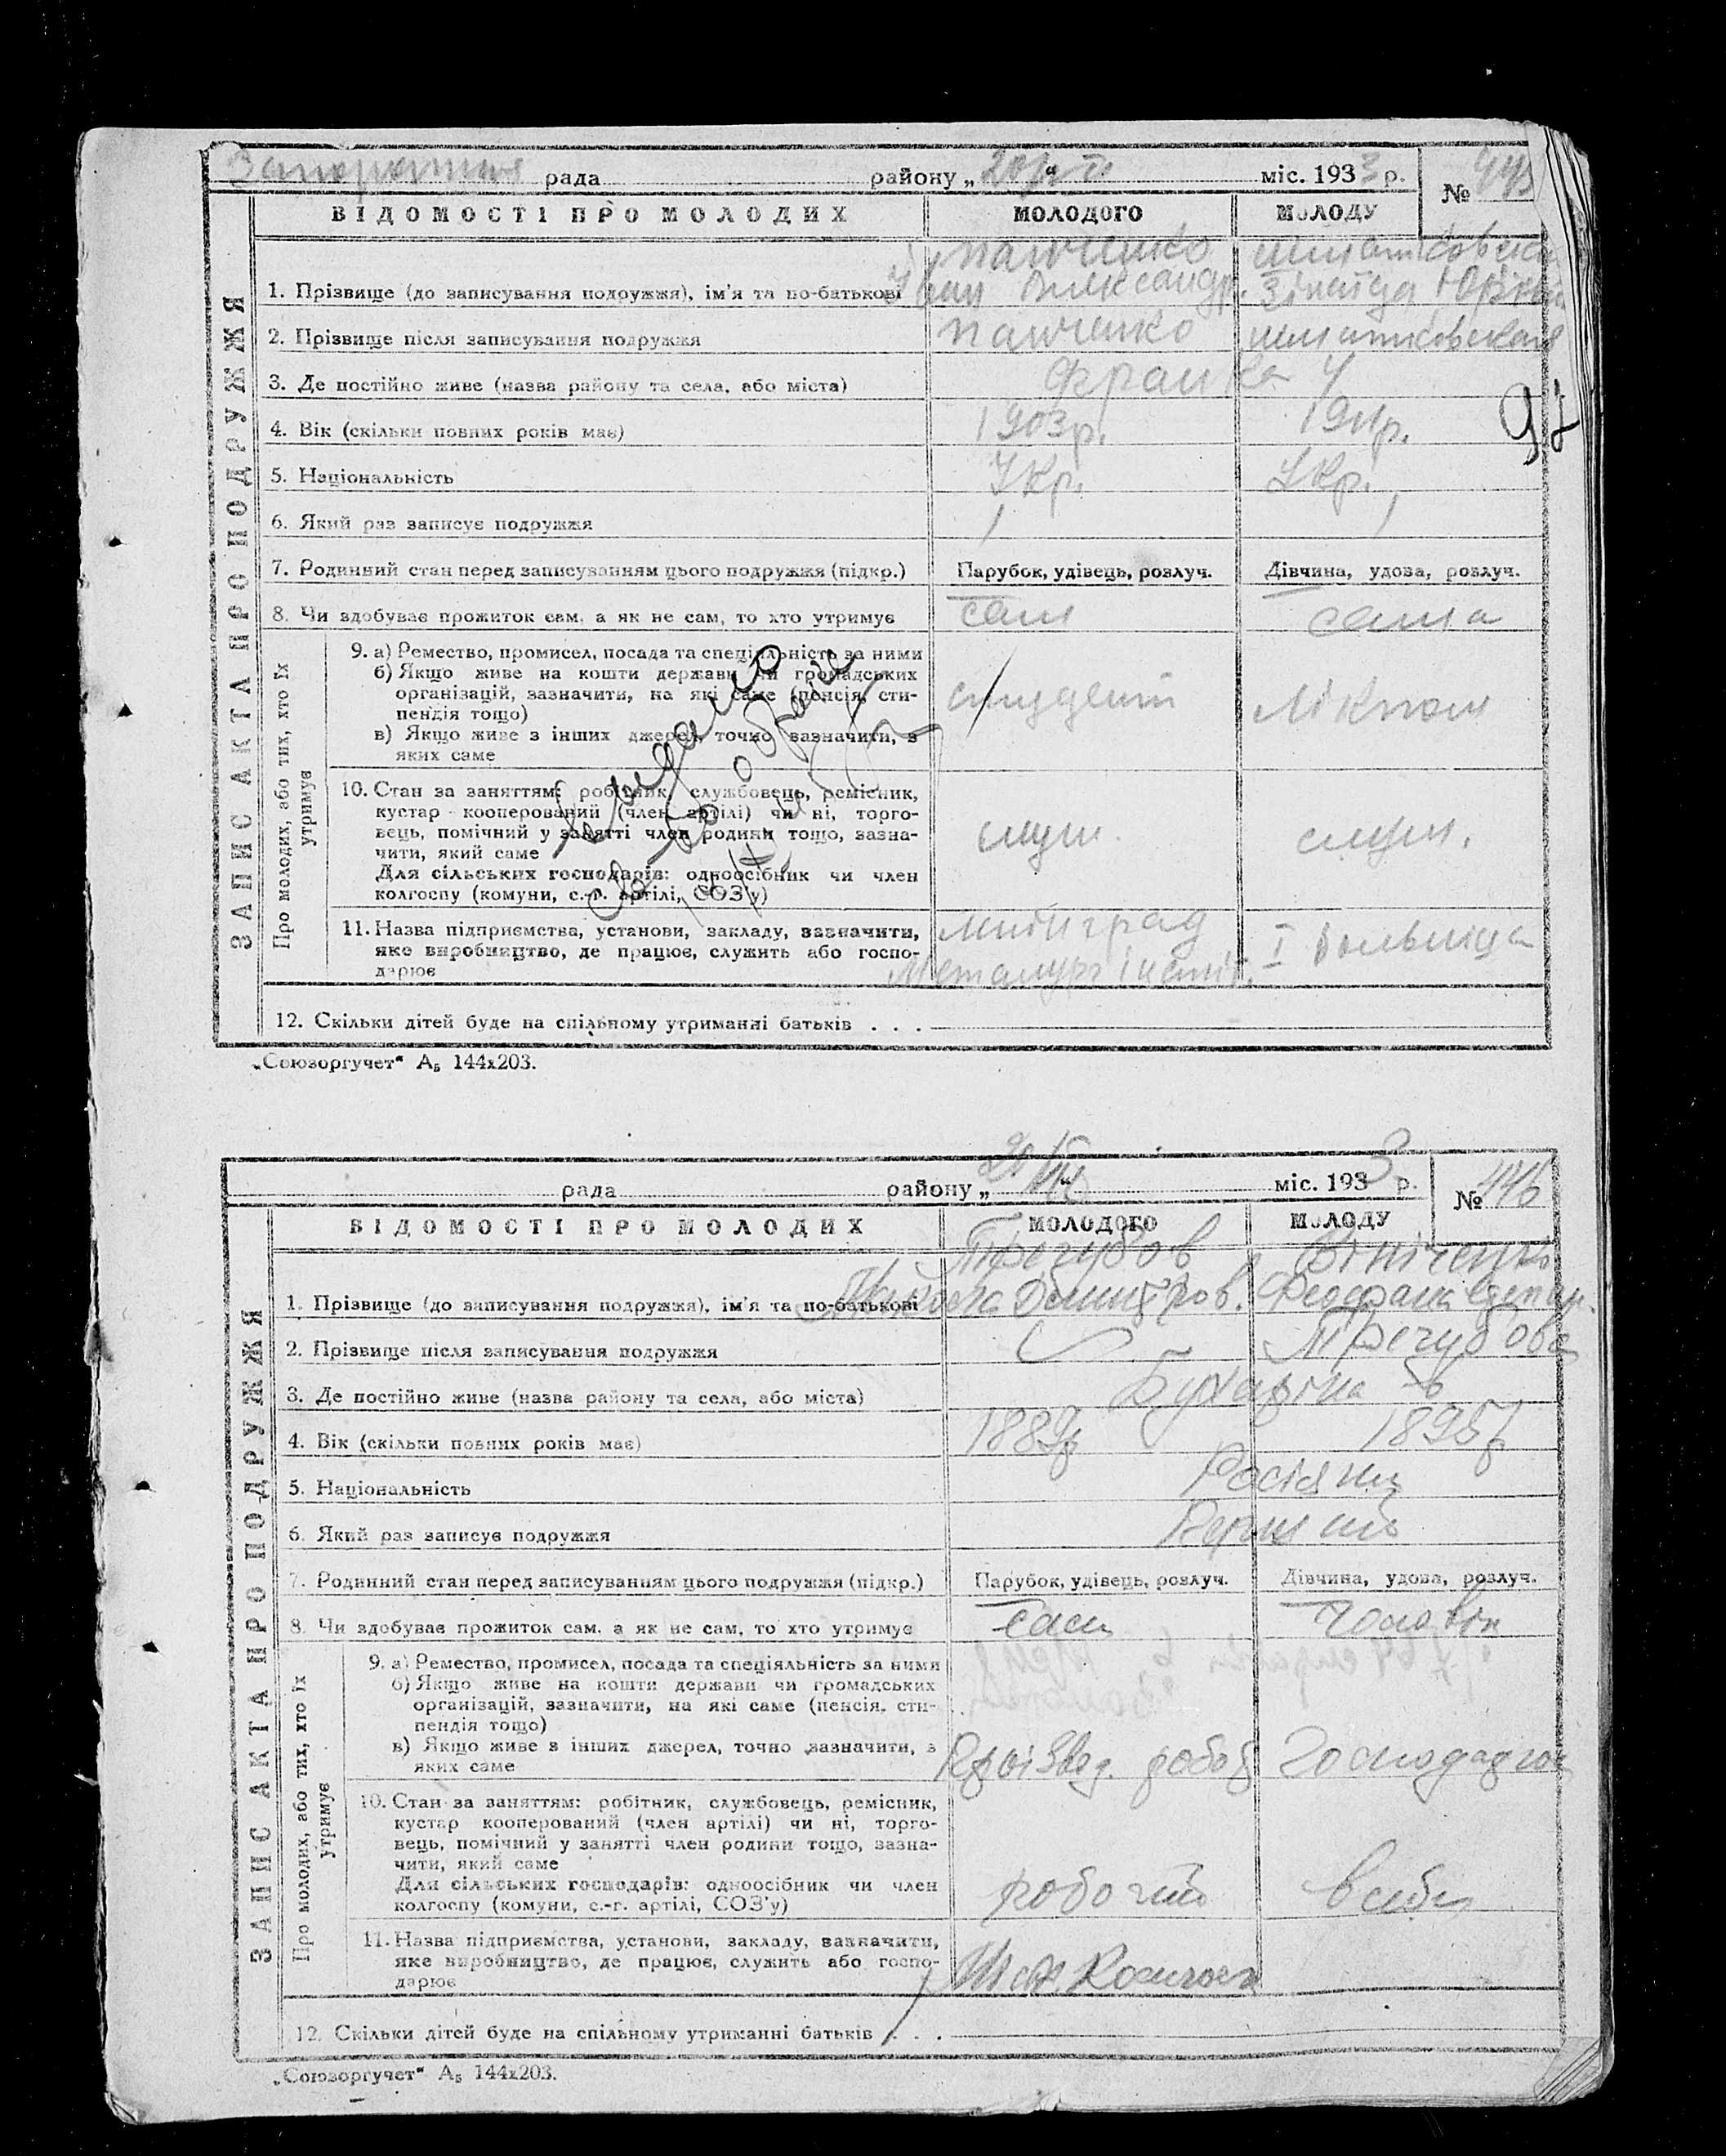 Запоріжжя рада району „20/VI“ міс. 1933 р. № 445
ВІДОМОСТІ ПРО МОЛОДИХ МОЛОДОГО МОЛОДУ
ЗАПИС АКТА ПРО ПОДРУЖЖЯ
Панченко
1. Прізвище (до записування подружжя), ім'я та по-батькові Іван Олександр. Зінаїда Юріївна
2. Прізвище після записування подружжя Панченко
3. Де постійно живе (назва району та села, або міста) Франка 4
4. Вік (скільки повних років має) 1903р. 1911р.
97
5. Національність Укр. Укр.
6. Який раз записує подружжя 1 1
7. Родинний стан перед записуванням цього подружжя (підкр.) Парубок, удівець, розлуч. Дівчина, удова, розлуч.
8. Чи здобуває прожиток сам, а як не сам, то хто утримує сам сама
Про молодих, або тих, хто їх утримує
9. а) Ремество, промисел, посада та спеціяльність за ними
б) Якщо живе на кошти держави чи громадських
організацій, зазначити, на які саме (пенсія, сти-
пендія тощо) студент Лікпом
в) Якщо живе з інших джерел, точно зазначити, з
яких саме
10. Стан за заняттям: робітник, службовець, ремісник,
кустар кооперований (член артілі) чи ні, торго-
вець, помічний у занятті член родини тощо, зазна- служ. служ.
чити, який саме
Для сільських господарів: одноосібник чи член
колгоспу (комуни, с.-г. артілі, СОЗ'у)
11. Назва підприємства, установи, закладу, зазначити,
яке виробництво, де працює, служить або госпо- І больниця
дарює Металург інстит.
12. Скільки дітей буде на спільному утриманні батьків . . .
„Союзоргучет“ А5 144х203.
рада району „20/VI“ міс. 1933 р. № 446
ВІДОМОСТІ ПРО МОЛОДИХ МОЛОДОГО МОЛОДУ
ЗАПИС АКТА ПРО ПОДРУЖЖЯ
Трегубов Вініченко
1. Прізвище (до записування подружжя), ім'я та по-батькові Микола Дмитров.
2. Прізвище після записування подружжя Трегубова
3. Де постійно живе (назва району та села, або міста) Бухаріна
4. Вік (скільки повних років має) 1889р 1895р
5. Національність Росіяни
6. Який раз записує подружжя Перший
7. Родинний стан перед записуванням цього подружжя (підкр.) Парубок, удівець, розлуч. Дівчина, удова, розлуч.
8. Чи здобуває прожиток сам, а як не сам, то хто утримує сам чоловік
Про молодих, або тих, хто їх утримує
9. а) Ремество, промисел, посада та спеціяльність за ними
б) Якщо живе на кошти держави чи громадських
організацій, зазначити, на які саме (пенсія, сти-
пендія тощо)
в) Якщо живе з інших джерел, точно зазначити, з
яких саме робоб
10. Стан за заняттям: робітник, службовець, ремісник,
кустар кооперований (член артілі) чи ні, торго-
вець, помічний у занятті член родини тощо, зазна-
чити, який саме
Для сільських господарів: одноосібник чи член
колгоспу (комуни, с.-г. артілі, СОЗ'у) робочий
11. Назва підприємства, установи, закладу, зазначити,
яке виробництво, де працює, служить або госпо-
дарює
12. Скільки дітей буде на спільному утриманні батьків . . .
„Союзоргучет“ А5 144х203.